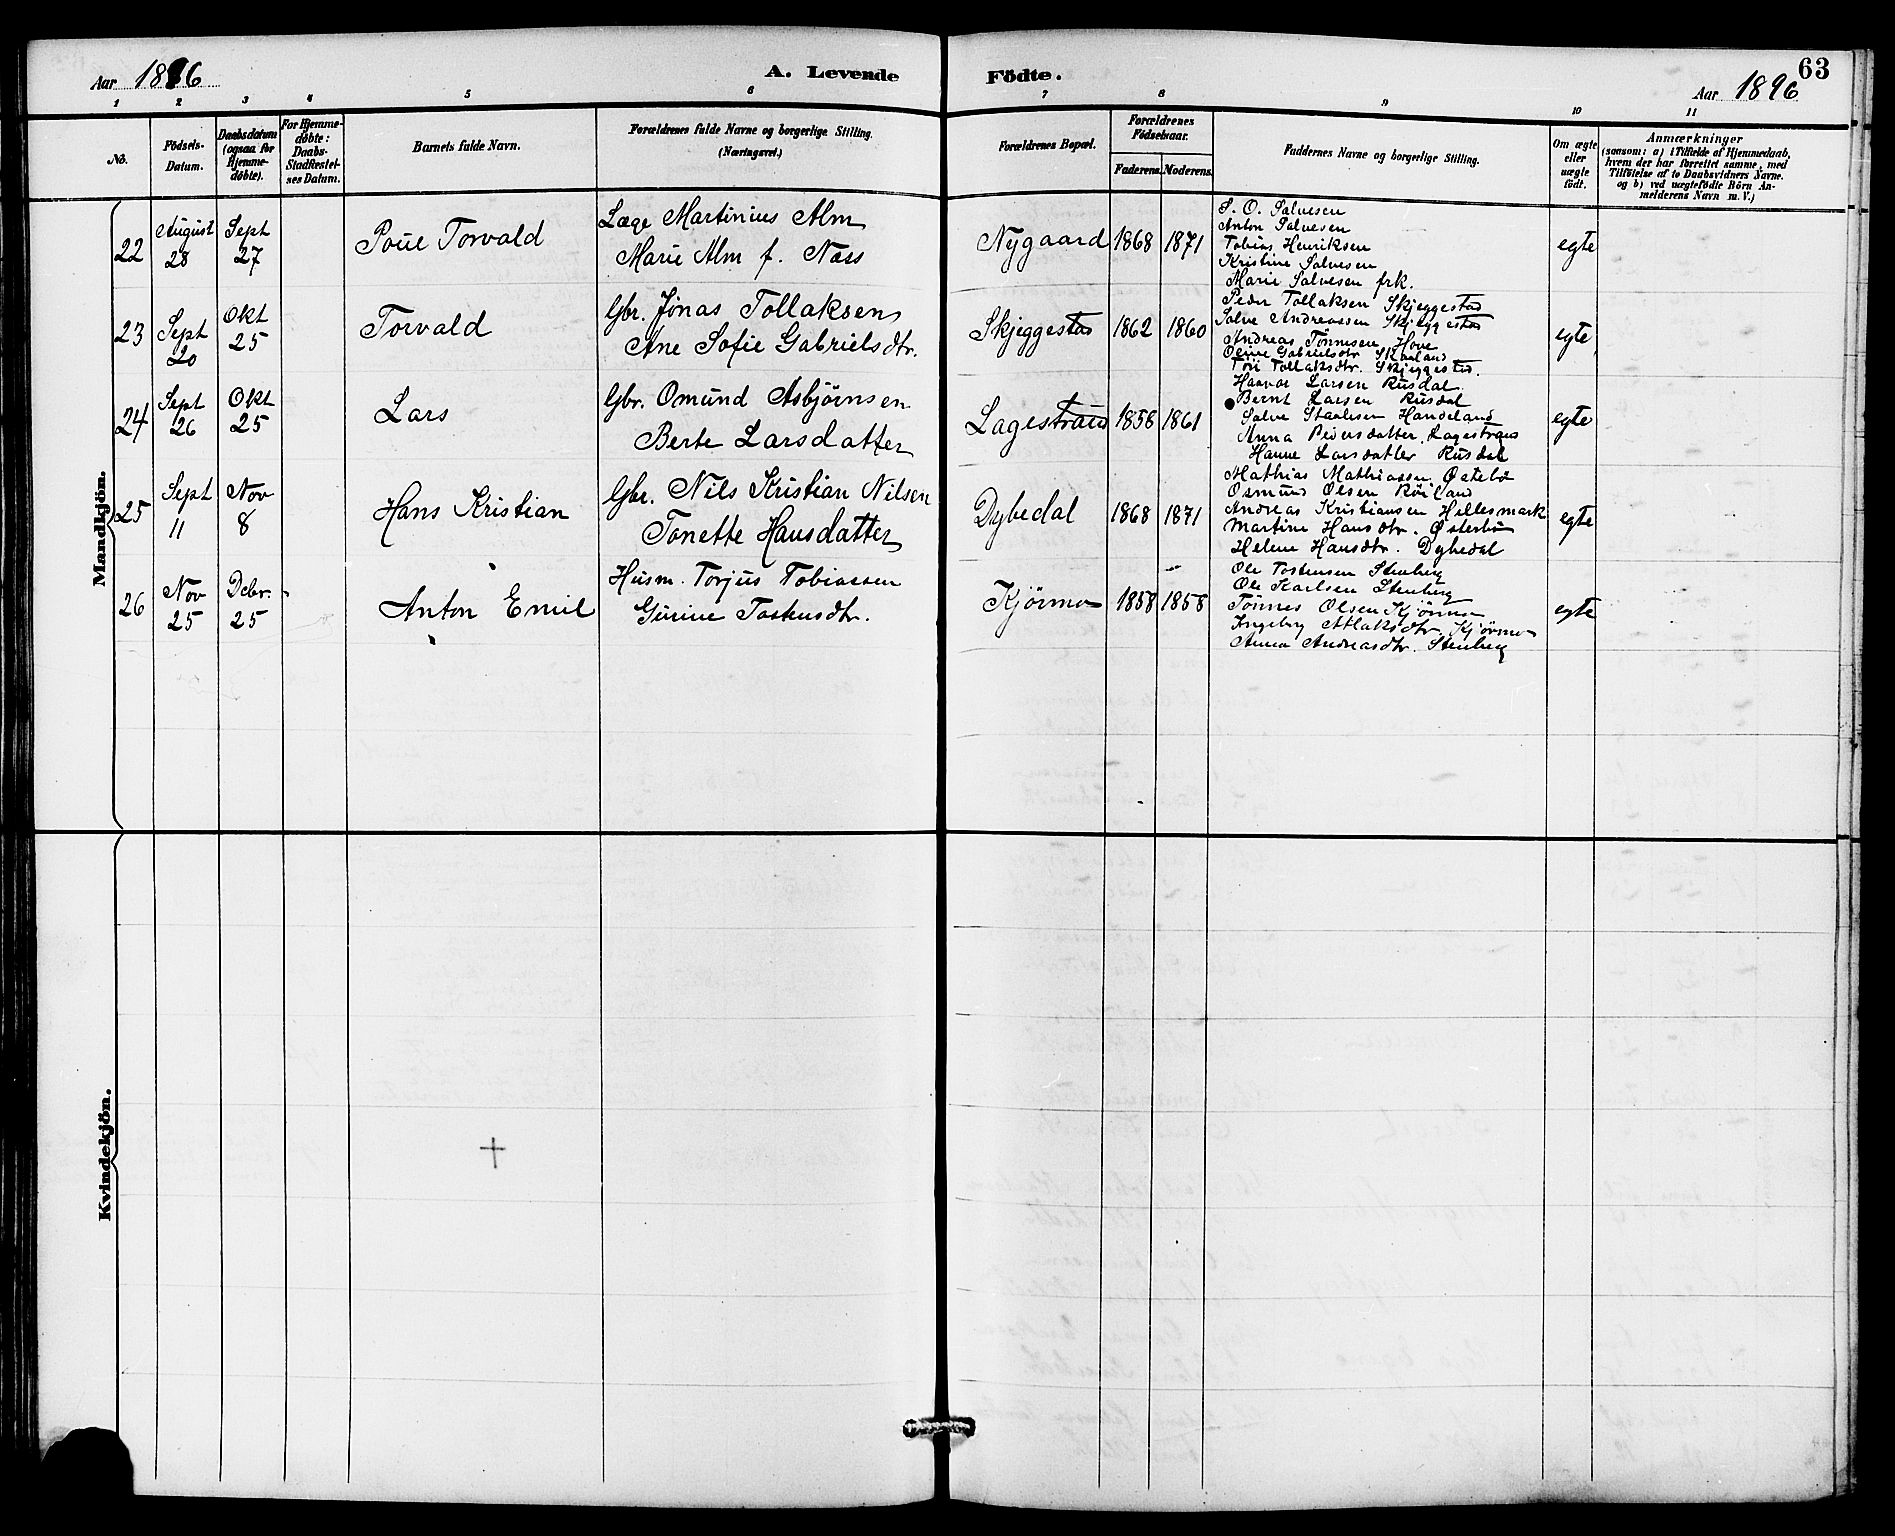 Aar 1896
A. Levende
Födte.
63
Aar 1896
1 2 3 4 5 6 7 8 9 10 11
No.
Födsels-
Datum.
Daabsdatum
(ogsaa for
Hjemme-
döbte).
For Hjemme-
döbte:
Daabs-
Stadfæstel-
ses Datum.
Barnets fulde Navn.
Forældrenes fulde Navne og borgerlige Stilling.
(Næringsvei.)
Forældrenes Bopæl.
Forældrenes
Födselsaar.
Faderens. Moderens.
Faddernes Navne og borgerlige Stilling.
Om ægte
eller
uægte
födt.
Anmærkninger
(saasom: a) i Tilfælde af Hjemmedaab,
hvem der har forrettet samme, med
Tilföielse af to Daabsvidners Navne.
og b) ved uægtefödte Börn An-
melderens Navn m. V.)
Mandkjön.
22
August
28
Sept
27
Torvald
Læge Martinius Alm
Marie Alm f. Næss
Nygaard
1868 1871
S. O. Salvesen
Anton Salvesen
Tobias Henriksen
Kristine Salvesen
Marie Salvesen frk.
egte
23
Sept
20
Okt
25
Torvald
Gbr. Jonas Tollaksen
Ane Sofie Gabrielsdtr.
Skjeggestad
1862 1860
Peder Tollaksen Skjeggestad
Salve Andreassen Skjeggestad
Andreas Tønnesen Hove
Oline Gabrielsdtr. Skarland
Tollaksdtr. Skjeggestad.
egte
24
Sept
26
Okt
25
Lars
Gbr. Omund Asbjørnsen
Berte Larsdatter
Lagestraad
1858 1861
Haavar Larsen Rusdal.
Bernt Larsen Rusdal
Salve Staalesen Handeland
Anna Pedersdatter Lagestraad
Hanne Larsdatter Rusdal
egte
25
Sept
11
Nov
8
Hans Kristian
Gbr. Nils Kristian Nilsen
Tonette Hansdatter
Dybedal
1868 1871
Mathias Mathiassen Østebø
Osmund Olsen Røiland
Andreas Kristiansen Hellesmark
Martine Hansdtr. Østerbø
Helene Hansdtr. Dybedal
egte
26
Nov
25
Decbr.
25
Anton Emil
Husm. Torjus Tobiassen
Gurine Tostensdtr.
Kjørmo
1858 1858
Ole Tostensen Stenberg
Ole Karlsen Stenberg
Tønnes Olsen Kjørmo
Ingeborg Atlaksdtr. Kjørmo
Anna Andreasdtr. Stenberg
egte
Kvindekjön.